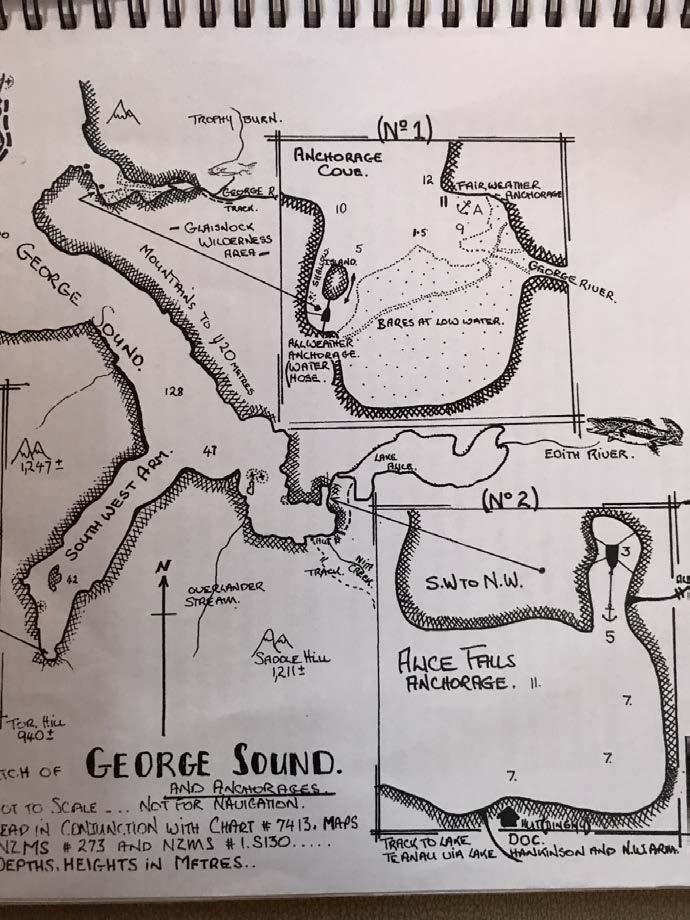 TROPHY BURN.
GEORGE R.
TRACK.
- GLAISNOCK
WILDERNESS
AREA -
(Nº1)
ANCHORAGE
COVE.
12
FAIR WEATHER
ANCHORAGE
11
A
9
10
1.5
5
SHALLOW
ISLAND.
GEORGE RIVER.
BARES AT LOW WATER.
ALLWEATHER
ANCHORAGE.
(WATER
HOSE.)
GEORGE SOUND.
MOUNTAINS TO 920 METRES
128
47
1,247±
SOUTH WEST ARM.
42
LAKE
ALICE.
EDITH RIVER.
HUT
TRACK.
OVERLANDER
STREAM.
N
SADDLE HILL
1,211±
TOR. HILL
940±
(Nº2)
S.W TO N.W.
3
5
ALICE FALLS
ANCHORAGE.
11.
7.
7.
7.
HUT (DINGHY)
DOC.
TRACK TO LAKE
TE ANAU VIA LAKE HANKINSON AND N.W ARM.
TCH OF GEORGE SOUND.
AND ANCHORAGES.
OT TO SCALE ... NOT FOR NAVIGATION.
EAD IN CONJUNCTION WITH CHART # 7413. MAPS
NZMS # 273 AND NZMS # 1. S130.....
DEPTHS, HEIGHTS IN METRES..